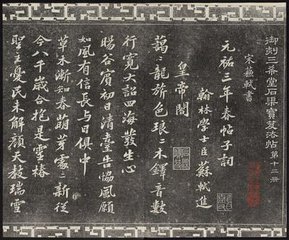 御刻三希堂石渠寶笈法帖第十二冊
宋蘇軾書
元祐三年春帖子詞
翰林學士臣蘇軾進
皇帝閣
藹藹龍旂色琅琅木鐸音數
行寬大詔四海發生心
暘谷賓初日清臺告協風願
如風有信長與日俱中
草木漸知春萌芽處處新從
今八千歲合抱是靈椿
聖主憂民未解顏天教瑞雪